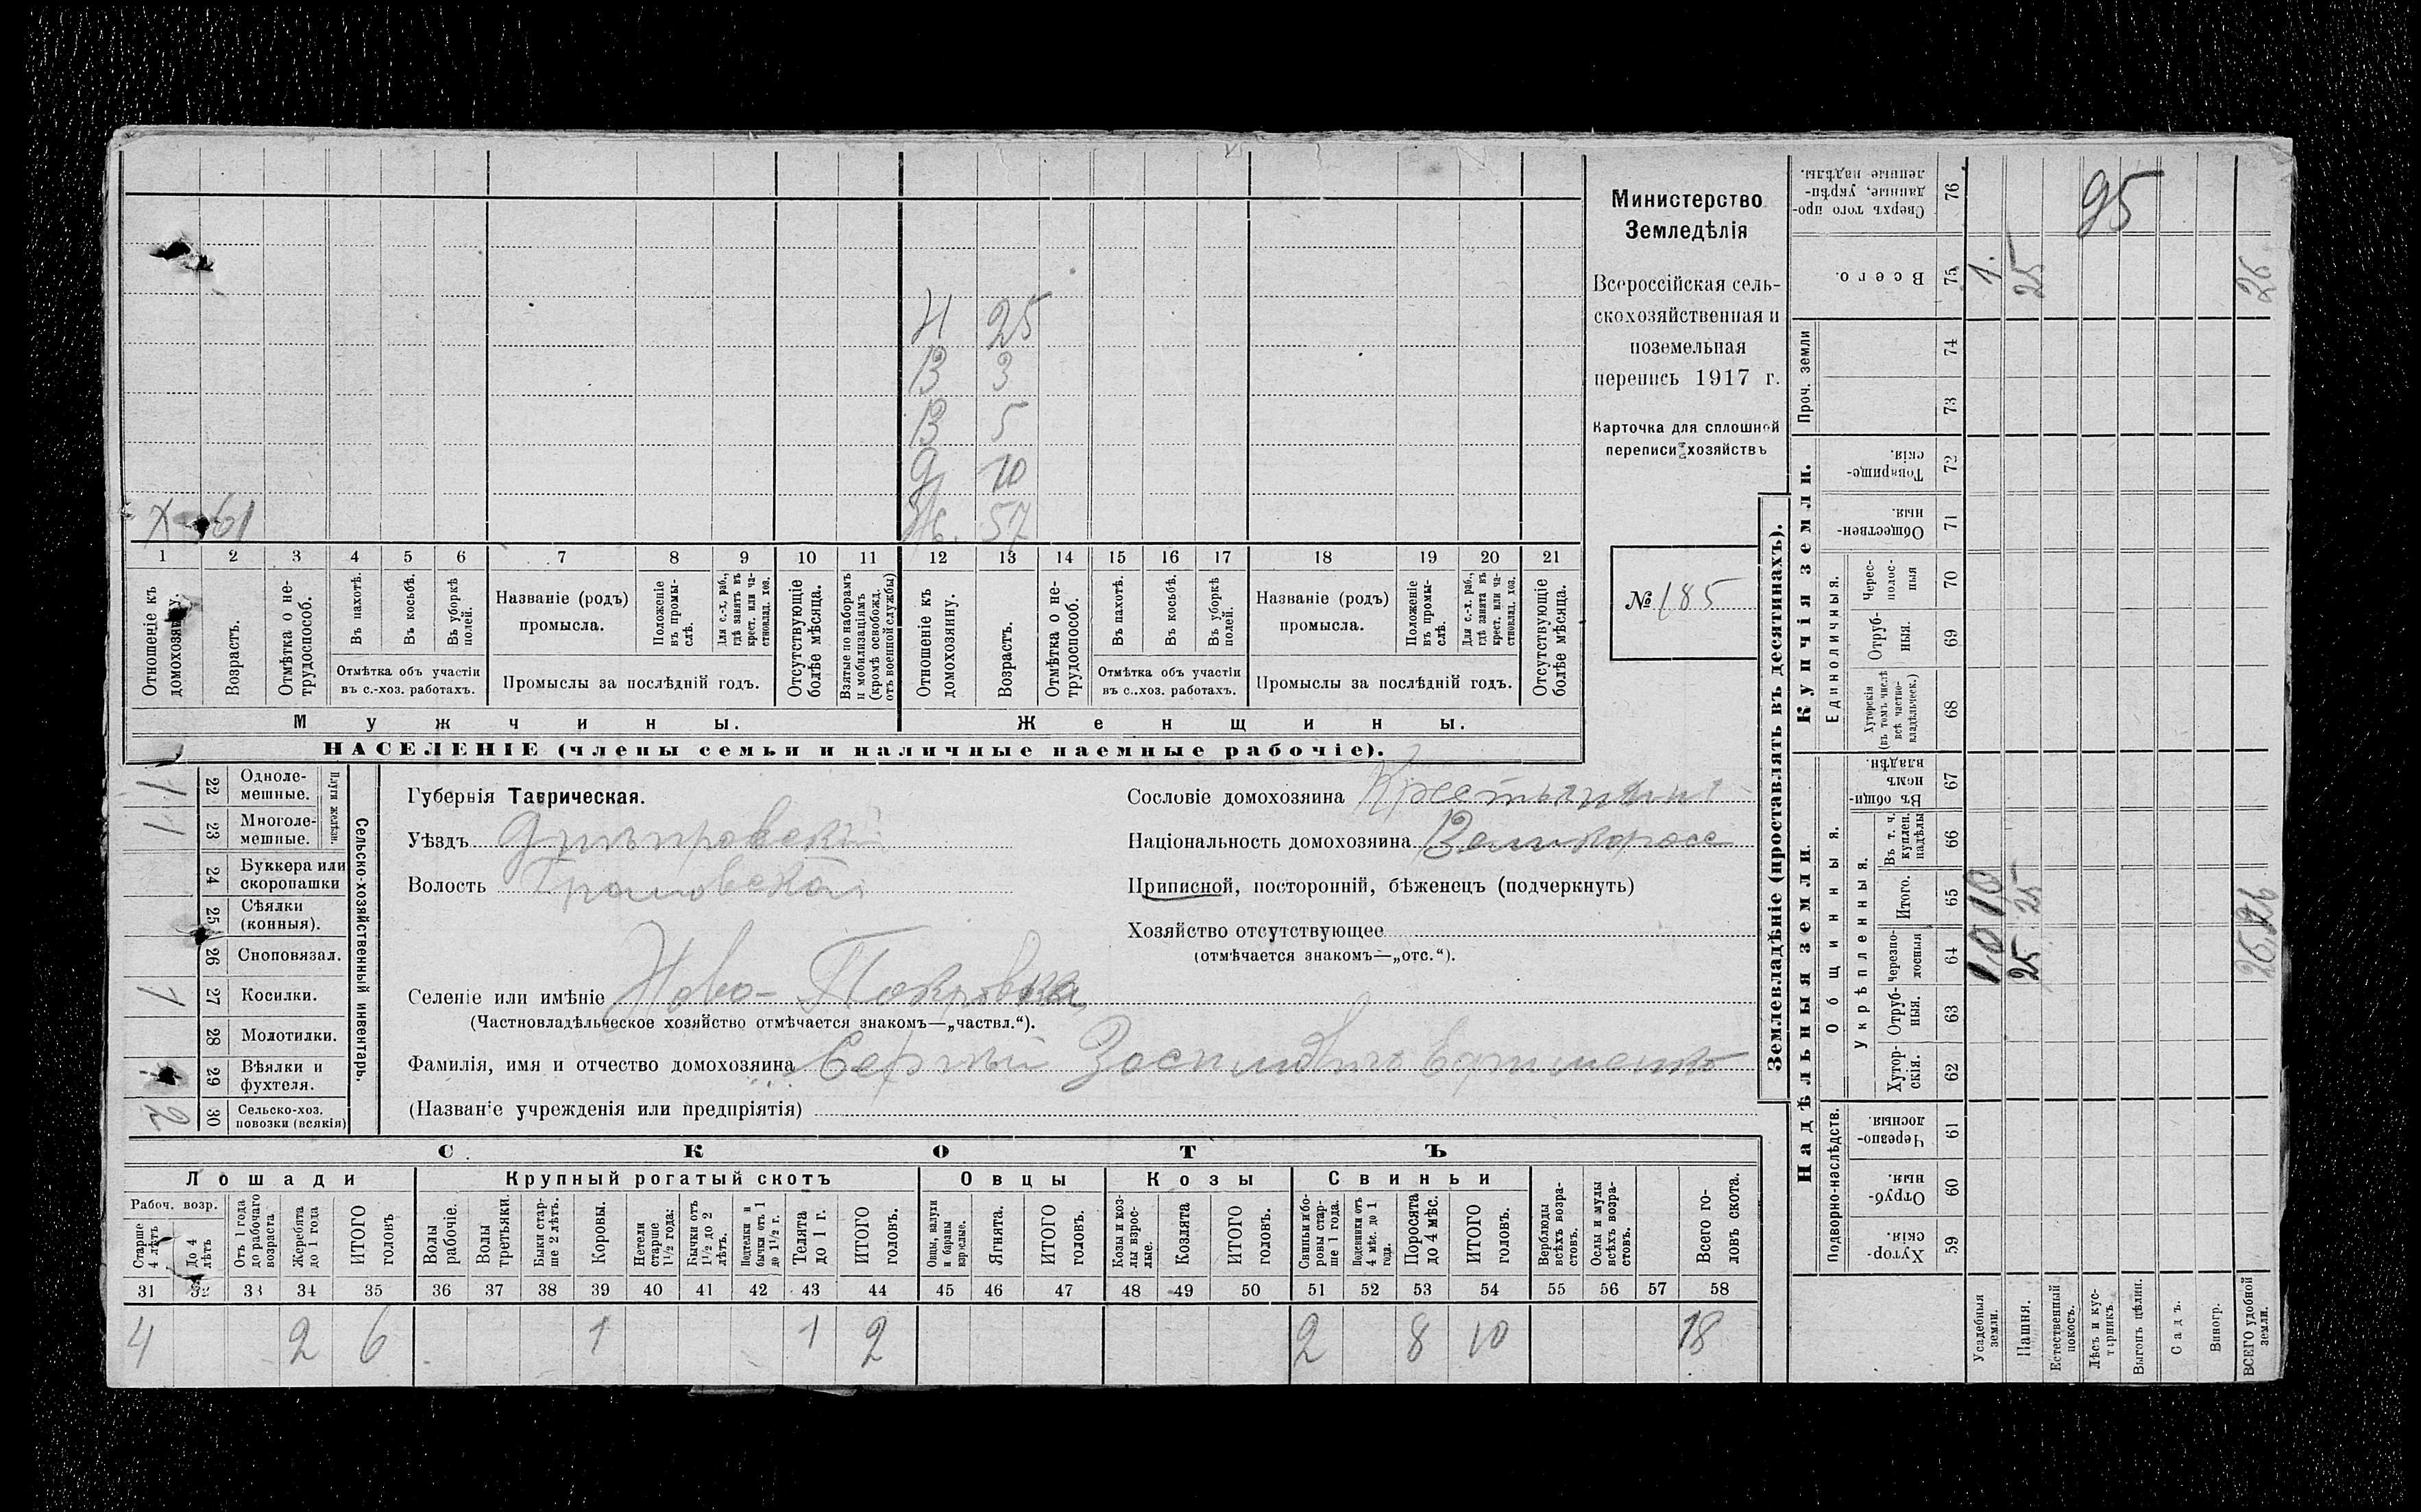 Министерство
Земледѣлія
Всероссійская сель-
скохозяйственная и
поземельная
перепись 1917 г.
Карточка для сплошной
переписи хозяйствъ
№ 185
Н 25
В 3
В 5
10
Ж. 57
Х 61
1 2 3 4 5 6 7 8 9 10 11 12 13 14 15 16 17 18 19 20 21
Отношеніе къ домохозяину.
Возрастъ.
Отмѣтка о не-трудоспособ.
Въ пахотѣ.
Въ косьбѣ.
Въ уборкѣ полей.
Отмѣтка объ участіи
въ с.-хоз. работахъ.
Названіе (родъ)
промысла.
Положеніе въ промы-слѣ.
Для с.-х. раб., гдѣ занятъ въ крест. или ча-стновлад. хоз.
Промыслы за послѣдній годъ.
Отсутствующіе болѣе мѣсяца.
Взятые по наборамъ и мобилизаціямъ (кромѣ освобожд. отъ военной службы)
Отношеніе къ домохозяину.
Возрастъ.
Отмѣтка о не-трудоспособ.
Въ пахотѣ.
Въ косьбѣ.
Въ уборкѣ полей.
Отмѣтка объ участіи
въ с.-хоз. работахъ.
Названіе (родъ)
промысла.
Положеніе въ промы-слѣ.
Для с.-х. раб., гдѣ занята въ крест. или ча-стновлад. хоз.
Промыслы за послѣдній годъ.
Отсутствующіе болѣе мѣсяца.
Мужчины. Женщины.
НАСЕЛЕНІЕ (члены семьи и наличные наемные рабочіе).
Сельско-хозяйственный инвентарь.
Плуги желѣзн.
1 22 Одноле-мешные.
1 23 Многоле-мешные.
24 Буккера или скоропашки
25 Сѣялки (конныя).
26 Сноповязал.
1 27 Косилки.
28 Молотилки.
29 Вѣялки и фухтеля.
2 30 Сельско-хоз. повозки (всякія)
Губернія Таврическая.
Уѣздъ Днѣпровскій
Волость
Селеніе или имѣніе Ново-Покровка
(Частновладѣльческое хозяйство отмѣчается знакомъ—„частвл.“).
Фамилія, имя и отчество домохозяина Сергѣй
(Названіе учрежденія или предпріятія)
Сословіе домохозяина Крестьянинъ
Національность домохозяина Великороссъ
Приписной, посторонній, бѣженецъ (подчеркнуть)
Хозяйство отсутствующее
(отмѣчается знакомъ—„отс.“).
СКОТЪ
Лошади Крупный рогатый скотъ Овцы Козы Свиньи
Рабоч. возр.
Старше 4 лѣтъ
До 4 лѣтъ
Отъ 1 года до рабочаго возраста
Жеребята до 1 года
ИТОГО головъ
Волы рабочіе.
Волы третьяки.
Быки стар-ше 2 лѣтъ.
Коровы.
Нетели старше 1½ года.
Бычки отъ 1½ до 2 лѣтъ.
Подтелки и бычки отъ 1 до 1½ г.
Телята до 1 г.
ИТОГО головъ.
Овцы, валухи и бараны взрослые.
Ягнята.
ИТОГО головъ.
Козы и коз-лы взрос-лые.
Козлята
ИТОГО головъ.
Свиньи и бо-ровы стар-ше 1 года.
Подсвинки отъ 4 мѣс. до 1 года.
Поросята до 4 мѣс.
ИТОГО головъ.
Верблюды всѣхъ возра-стовъ.
Ослы и мулы всѣхъ возра-стовъ.
Всего го-ловъ скота.
31 32 33 34 35 36 37 38 39 40 41 42 43 44 45 46 47 48 49 50 51 52 53 54 55 56 57 58
4 2 6 1 1 2 2 8 10 18
Землевладѣніе (проставлять въ десятинахъ).
Надѣльныя земли. Купчія земли.
Проч. земли
Подворно-наслѣдств.
Общинныя.
Укрѣпленныя.
Единоличныя.
Хутор-скія. 59
Отруб-ныя. 60
Черезпо-лосныя. 61
Хутор-скія. 62
Отруб-ныя. 63
Черезпо-лосныя 64
Итого. 65
Въ т. ч. куплен. надѣлы 66
Въ общи-номъ владѣн. 67
Хуторскія (въ томъ числѣ всѣ частно-владѣльческ.) 68
Отруб-ныя. 69
Черес-полос-ныя 70
Обществен-ныя. 71
Товарище-скія. 72
73
74
Всего. 75
Сверхъ того про-данные, укрѣп-ленные надѣлы. 76
Усадебныя земли. 1,0 1,0 1.
Пашня. 25 25 25
Естественный покосъ.
Лѣсъ и кус-тарникъ.
Выгонъ цѣлин.
Садъ.
Виногр.
ВСЕГО удобной земли. 26 26 26
95